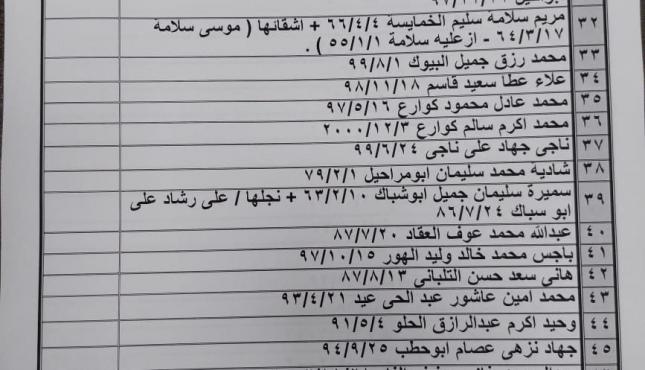 ٣٢ مريم سلامة سليم الخمايسه ٦٦/٤/٤ + اشقائها ( موسى سلامة
٦٤/٣/١٧ - ازعليه سلامة ٥٥/١/١ ) .
٣٣ محمد رزق جميل البيوك ٩٩/٨/١
٣٤ علاء عطا سعيد قاسم ٩٨/١١/١٨
٣٥ محمد عادل محمود كوارع ٩٧/٥/١٦
٣٦ محمد اكرم سالم كوارع ٢٠٠٠/١٢/٣
٣٧ ناجى جهاد على ناجى ٩٩/٦/٢٤
٣٨ شاديه محمد سليمان ابومراحيل ٧٩/٢/١
٣٩ سميرة سليمان جميل ابوشباك ٦٣/٢/١٠ + نجلها / على رشاد على
ابو سباك ٨٦/٧/٢٤
٤٠ عبدالله محمد عوف العقاد ٨٧/٧/٢٠
٤١ باجس محمد خالد وليد الهور ٩٧/١٠/١٥
٤٢ هانى سعد حسن التلبانى ٨٧/٨/١٣
٤٣ محمد امين عاشور عبد الحى عيد ٩٣/٤/٢١
٤٤ وحيد اكرم عبدالرازق الحلو ٩١/٥/٤
٤٥ جهاد نزهى عصام ابوحطب ٩٤/٩/٢٥